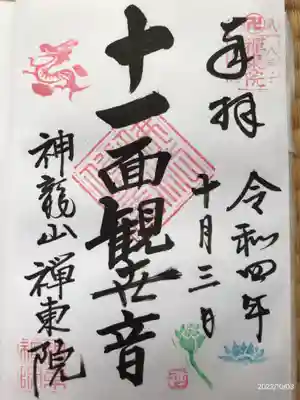 奉拝
令和四年
十月三日
十一面観世音
神龍山 禅東院
2022/10/03